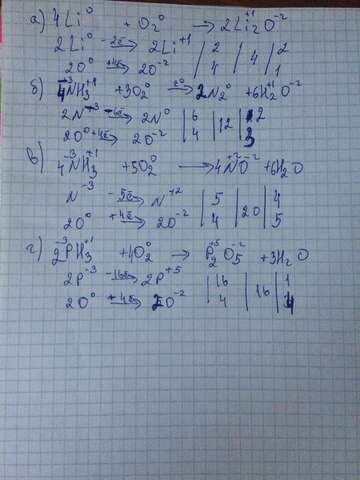 а) 4Li⁰ + O₂⁰ → 2Li₂⁺¹O⁻²
2Li⁰ -2ē→ 2Li⁺¹ | 2 | 4 | 2
2O⁰ +4ē→ 2O⁻² | 4 | | 1
б) 4N⁻³H₃⁺¹ + 3O₂⁰ t⁰→ 2N₂⁰ + 6H₂⁺¹O⁻²
2N⁻³ -6ē→ 2N⁰ | 6 | 12 | 2
2O⁰ +4ē→ 2O⁻² | 4 | | 3
в) 4N⁻³H₃⁺¹ + 5O₂⁰ → 4N⁺²O⁻² + 6H₂O
N⁻³ -5ē→ N⁺² | 5 | 20 | 4
2O⁰ +4ē→ 2O⁻² | 4 | | 5
г) 2P⁻³H₃⁺¹ + 4O₂⁰ → P₂⁺⁵O₅⁻² + 3H₂O
2P⁻³ -16ē→ 2P⁺⁵ | 16 | 16 | 1
2O⁰ +4ē→ 2O⁻² | 4 | | 4